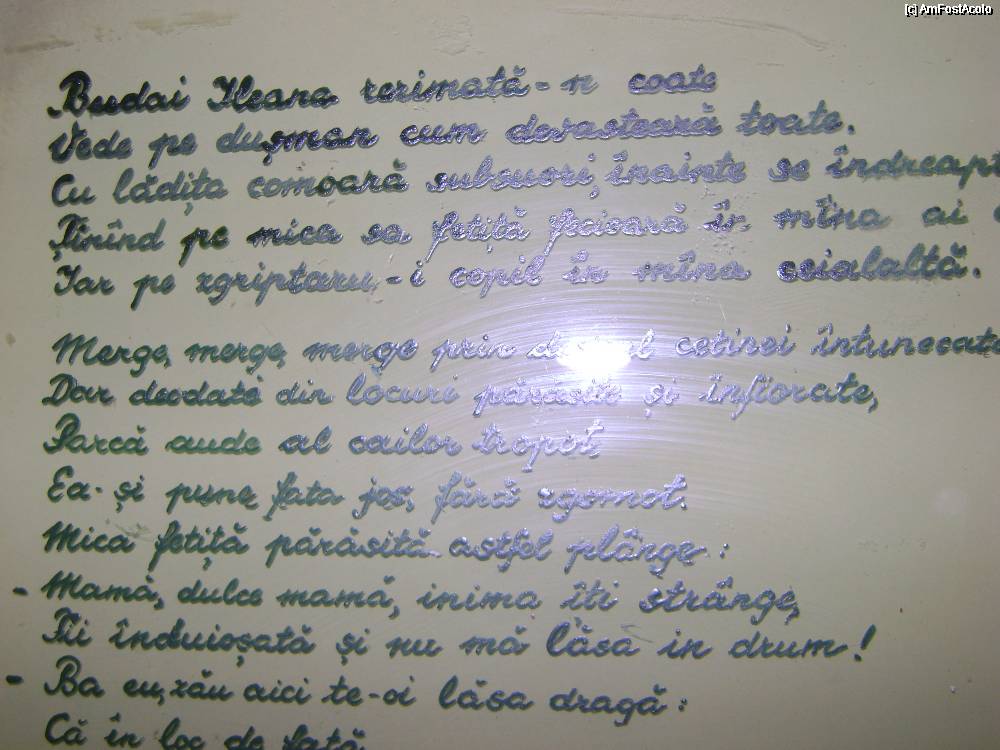 [c] AmFostAcolo
Budai Ileana rezimată-n coate
Vede pe dușman cum devastează toate.
Cu lădița comoară subsuori, înainte se îndreapt
Ținînd pe mica sa fetiță fecioară în mîna ai
Iar pe zgripțaru-i copil în mîna ceialaltă.
Merge, merge, merge prin cetinei întunecate
Dar deodată din locuri părăsite și înfiorate,
Parcă aude al cailor tropot,
Ea-și pune fata jos, fără zgomot.
Mica fetiță părăsită astfel plânge:
- Mamă, dulce mamă, inima îți strânge,
Fii înduioșată și nu mă lăsa in drum!
- Ba eu, zău aici te-oi lăsa dragă:
Că în loc de fată